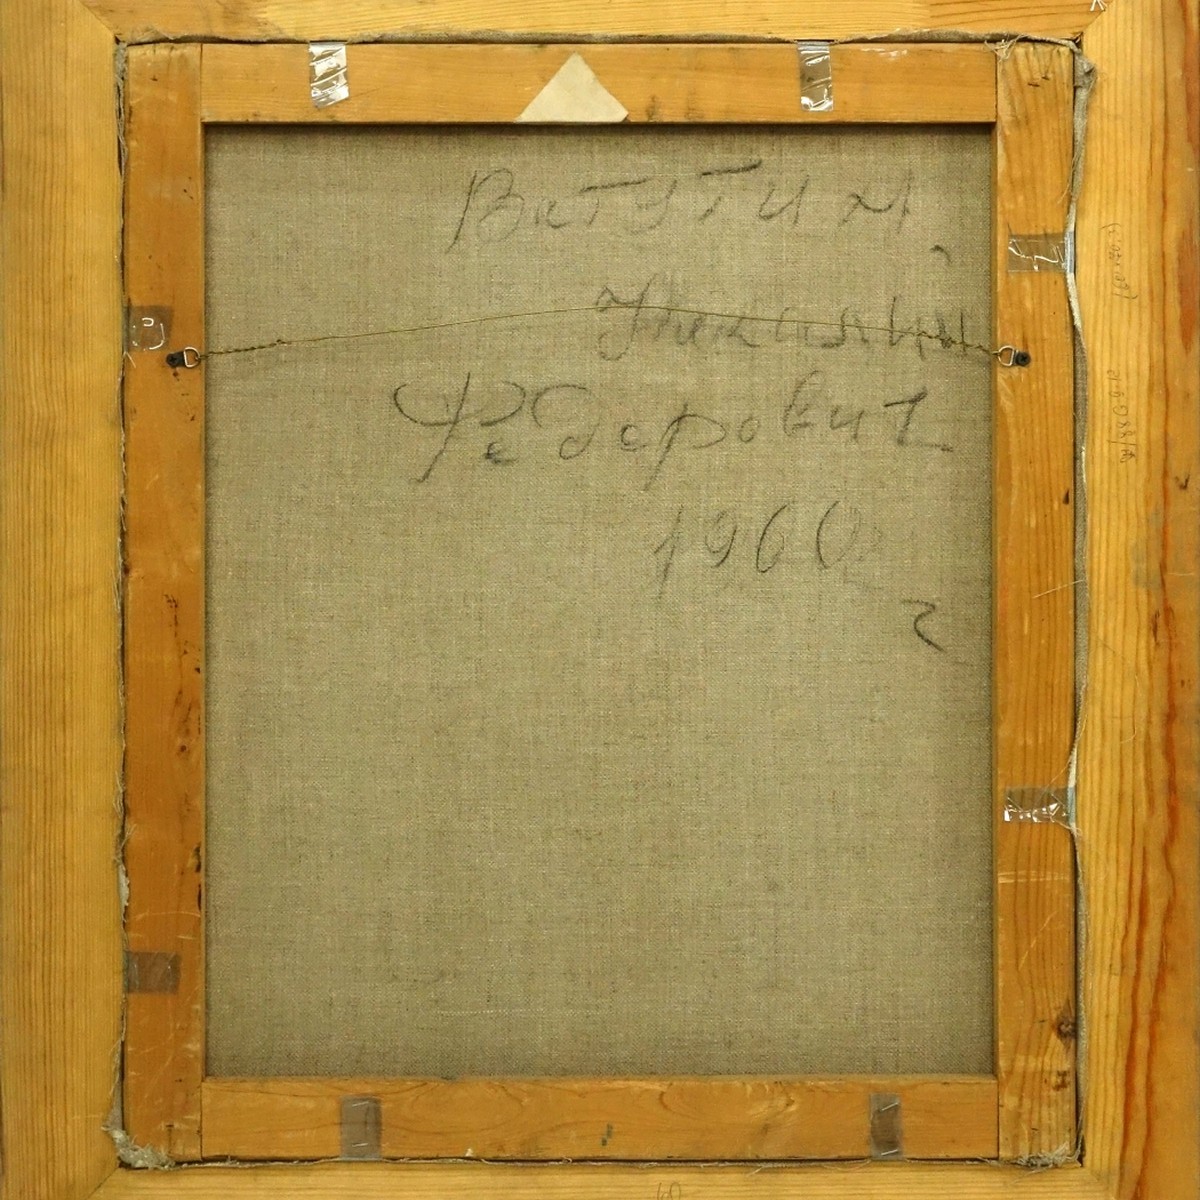 Ватутин
Николай
Федорович
1960
г